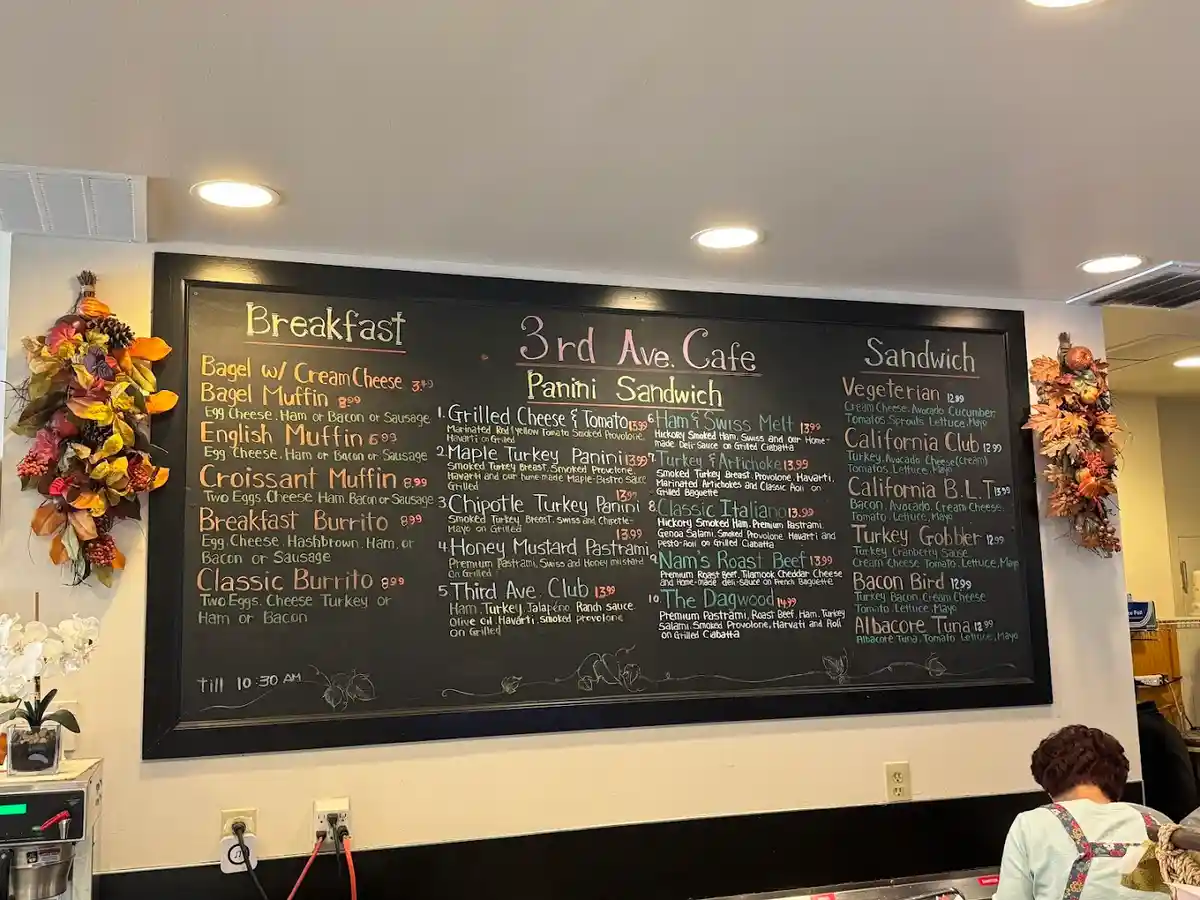 Breakfast
Bagel w/ Cream Cheese 3.49
Bagel Muffin 8.99
Egg Cheese. Ham or Bacon or Sausage
English Muffin 6.99
Egg Cheese. Ham or Bacon or Sausage
Croissant Muffin 8.99
Two Eggs. Cheese Ham. Bacon or Sausage
Breakfast Burrito 8.99
Egg. Cheese. Hashbrown. Ham. or
Bacon or Sausage
Classic Burrito 8.99
Two Eggs. Cheese Turkey or
Ham or Bacon
till 10:30 AM
3rd Ave. Cafe
Panini Sandwich
1. Grilled Cheese & Tomato 13.99
Marinated Red/yellow Tomato Smoked Provolone.
Havarti on Grilled
2. Maple Turkey Panini 13.99
Smoked Turkey Breast. Smoked Provolone.
Havarti and our home-made Maple-Bistro Sauce
Grilled
13.99
3. Chipotle Turkey Panini
Smoked Turkey Breast. Swiss and Chipotle-
Mayo on Grilled
13.99
4. Honey Mustard Pastrami
Premium Pastrami, Swiss and Honey mustard
on Grilled
5. Third Ave. Club 13.99
Ham. Turkey. Jalapeño Ranch sauce
Olive oil. Havarti. smoked provolone
on Grilled
6. Ham & Swiss Melt 13.99
Hickory Smoked Ham. Swiss and our Home-
made. Deli-Sauce on Grilled Ciabatta
7. Turkey & Artichoke 13.99
Smoked Turkey Breast. Provolone. Havarti.
Marinated Artichokes and Classic Aoli on
Grilled Baguette
8. Classic Italiano 13.99
Hickory Smoked Ham. Premium Pastrami.
Genoa Salami. Smoked Provolone. Havarti and
Pesto-Aoli on Grilled Ciabatta
9. Nam's Roast Beef 13.99
Premium Roast Beef. Tilamook Cheddar Cheese
and Home-made deli-Sauce on French Baguette
10. The Dagwood 14.99
Premium Pastrami. Roast Beef. Ham. Turkey
Salami. Smoked Provolone. Harvati and Aoli
on Grilled Ciabatta
Sandwich
Vegeterian 12.99
Cream Cheese. Avocado. Cucumber.
Tomatos Sprouts. Lettuce. Mayo
California Club 12.99
Turkey. Avocado. Cheese (Cream)
Tomatos. Lettuce. Mayo
California B.L.T 13.99
Bacon. Avocado. Cream Cheese.
Tomato. Lettuce. Mayo
Turkey Gobbler 12.99
Turkey Cranberry Sause.
Cream Cheese Tomato. Lettuce. Mayo
Bacon Bird 12.99
Turkey Bacon. Cream Cheese
Tomato. Lettuce. Mayo
Albacore Tuna 12.99
Albacore Tuna. Tomato. Lettuce. Mayo